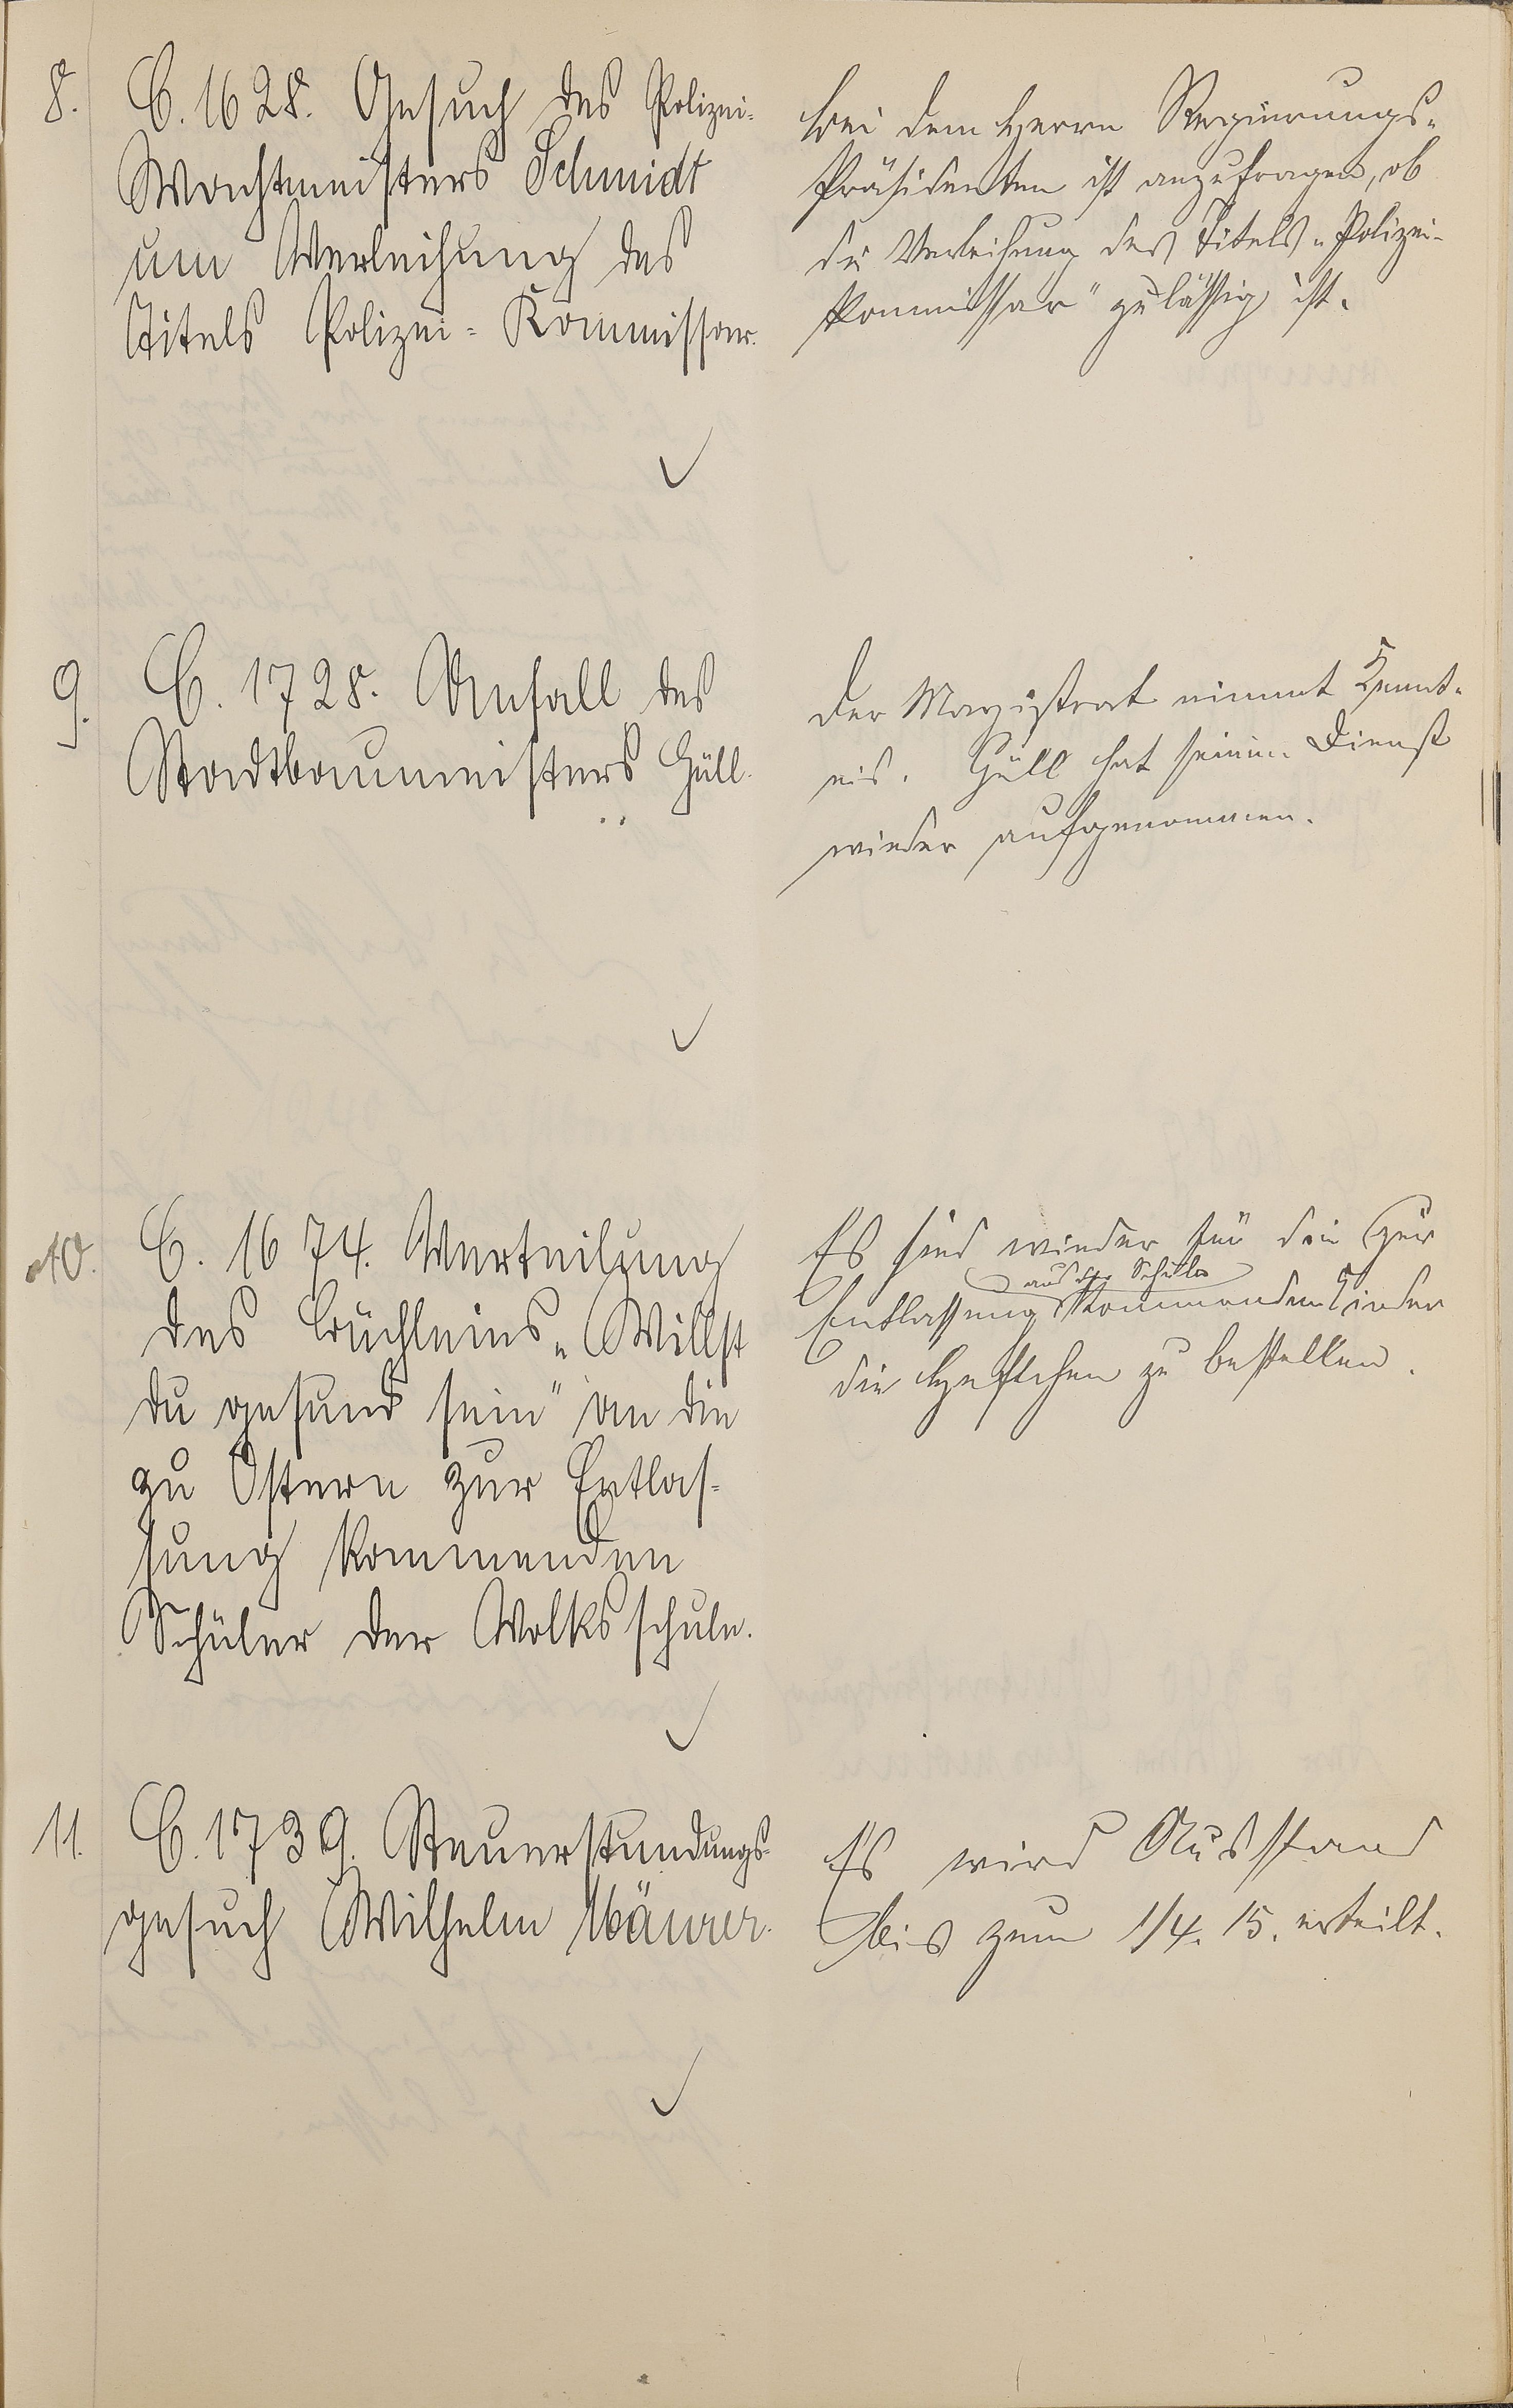 8.
C. 1628. Gesuch des Polizei-
Wachtmeisters Schmidt
um Verleihung des
Titels Polizei-Kommissar.
Bei dem Herrn Regierungs-
Präsidenten ist anzufragen, ob
die Verleihung des Titels „Polizei-
Kommissar" zulässig ist.
9.
C. 1728. Unfall des
Stadtbaumeisters Güll.
Der Magistrat nimmt Kennt-
nis. Güll hat seinen Dienst
wieder aufgenommen.
10.
C. 1674. Verteilung
des Büchleins „Willst
du gesund sein" an die
zu Ostern zur Entlas-
sung kommenden
Schüler der Volksschule.
Es sind wieder für die zur
aus der Schule
Entlassung kommenden Kinder
die Heftchen zu bestellen.
11.
C. 1739. Steuerstundungs-
gesuch Wilhelm Mäurer.
Es wird Ausstand
bis zum 1/4. 15. erteilt.